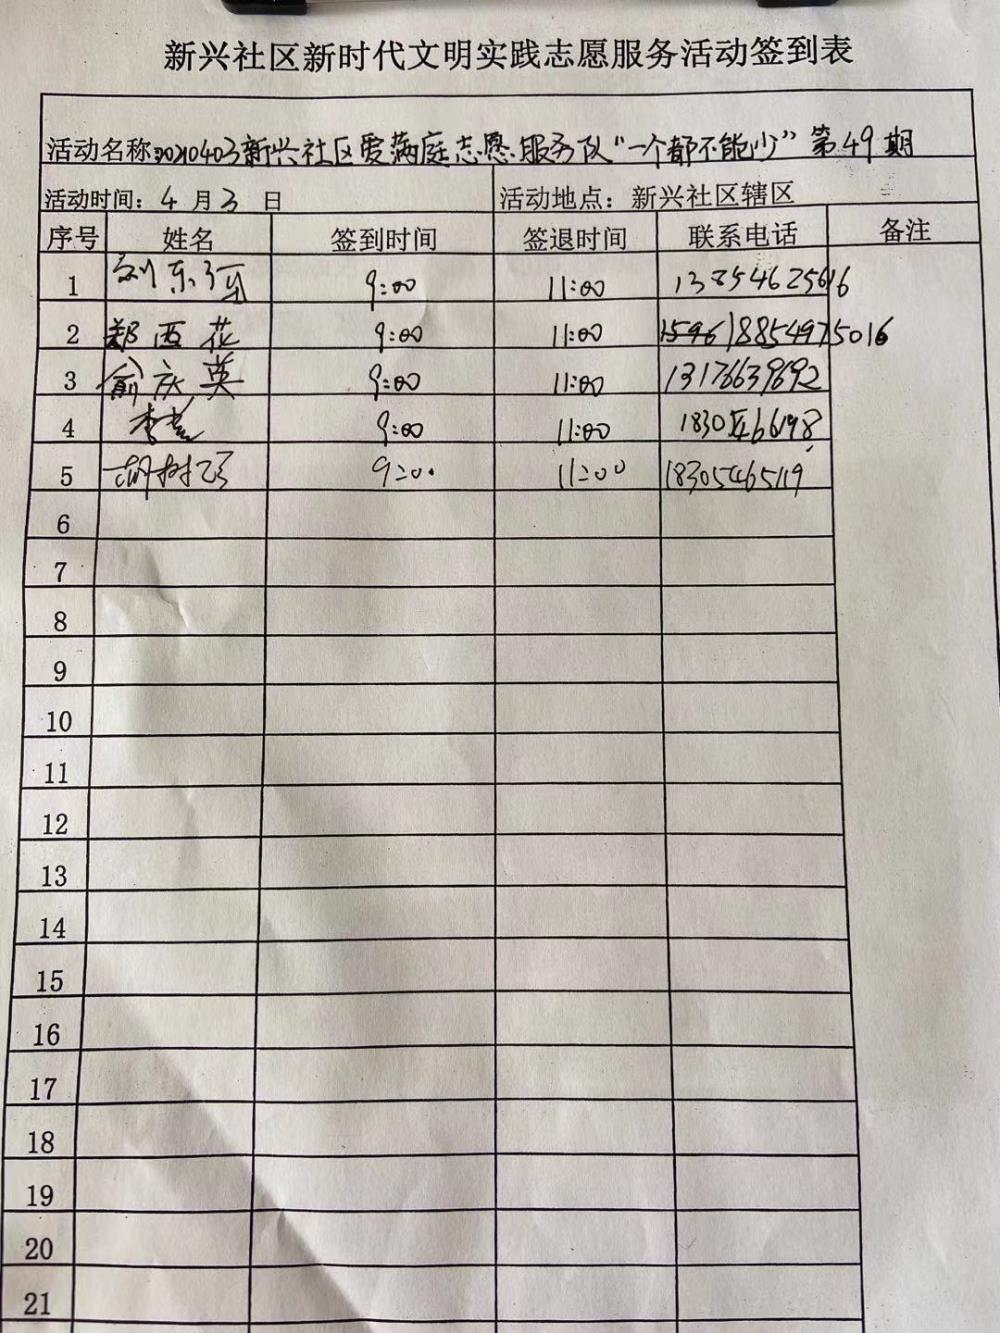 新兴社区新时代文明实践志愿服务活动签到表
活动名称:20210403新兴社区爱满庭志愿服务队“一个都不能少”第49期
活动时间: 4 月 3 日 活动地点: 新兴社区辖区
序号 姓名 签到时间 签退时间 联系电话 备注
1 刘东 9:00 11:00 13854625616
2 郑西花 9:00 11:00 18854975016
3 俞庆英 9:00 11:00 13176639692
4 李 9:00 11:00 18305466198
5 胡树 9:00 11:00 18305465119
6
7
8
9
10
11
12
13
14
15
16
17
18
19
20
21